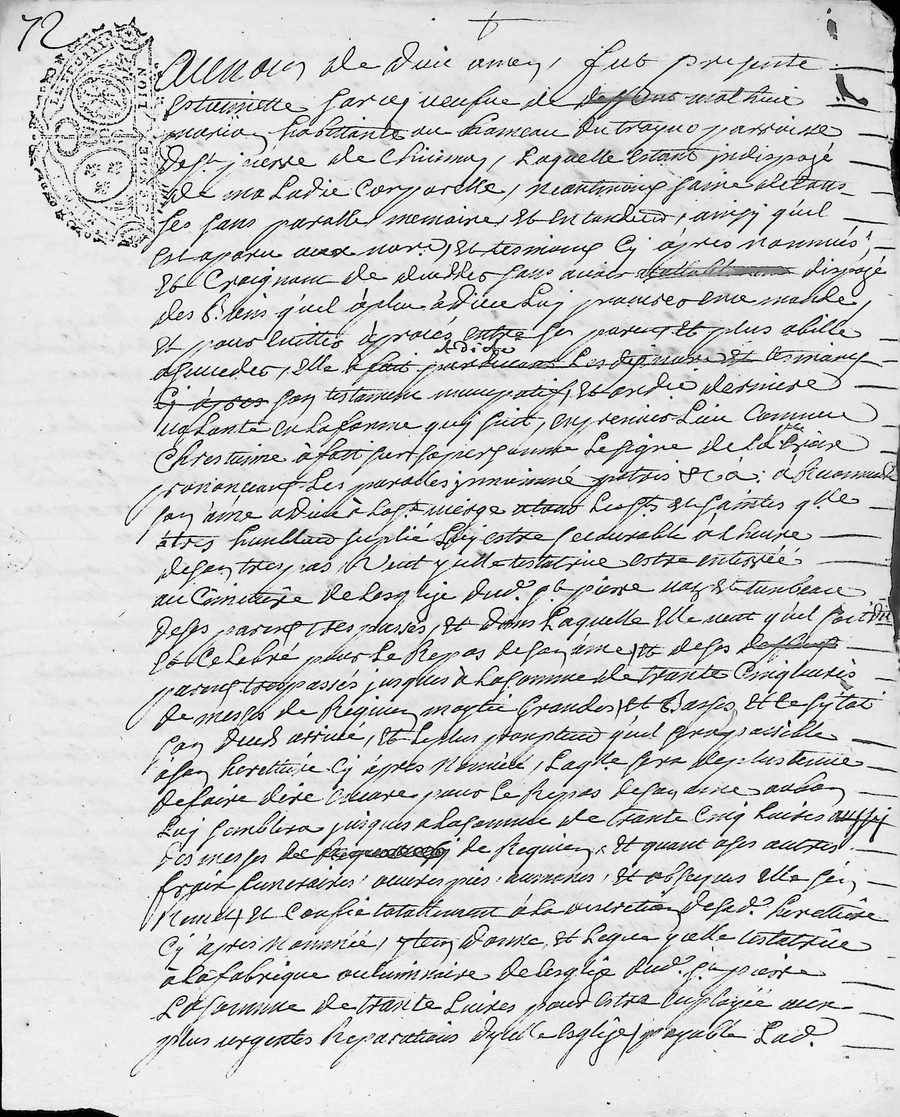 72
Au nom de dieu amen, fut presente
Estiennette veufve de deffunt mathieu
marion habitante au hameau du parroisse
de st. pierre de Laquelle estant indisposé
de maladie Corporelle, neantmoings saine de tous
ses sans parolle memoire, et entandeud, ainsy qu'il
est aparu aux nore, et tesmoings Cy après nommés,
Et Craignant de deceder sans avoir disposé
des Biens qu'il à plu à dieu Luy procurer en ce monde,
Et pour éuitter à procés entre ses parens et plus abille
a succeder, elle à fait Les dsd. nore et tesmoings
Cy après son testament nuncupatif, et ordre derniere
uolonté en La forme quj suit, en premier Lieu Comme
Chrestienne à fait sur sa personne Le signe de La Croix
prononceant Les parolles in nominé patris & Ca: a Recommandé
son ame a dieu à La ste. vierge et Saintes qlle
a tres humblemt suplié Luy estre secourable à lheure
de son trespas Veut ycelle testatrice estre enterréé
au Cimetiere de Lesglize dud. st pierre et tumbeau
de ses parens trespassés, et dans Laquelle Elle veut qu'il soit dit
Et Celebré pour Le Repos de son ame, et de ses deffunts
parens trespassés jusques à La somme de trante Cinq Liures
de messes de Requiem moytié Grandes, et Basses et ce sytot
son decés arriué, et Le plus promptemt qu'il sera possible
à son heretiere Cy après nommée, Laqlle sera de plus tenue
de faire dire encore pour Le Repos de son ame
Luy semblera jusques a La somme de trante Cinq Liures aussy
des messes de Requiem de Requiem, Et quant a ses autres
fraix funeraires, oeuvres pies, aumones, et obseques elle s'en
Remet, et Confie totallement à La discretion de sad. heretiere
Cy après nommée, donne, et Legue ycelle testatrice
à La fabrique ou luminaire de Lesglize dud. st pierre
La somme de trante Liures pour estre employée aux
plus urgentes Reparations dycelle Esglize, payable Lad.